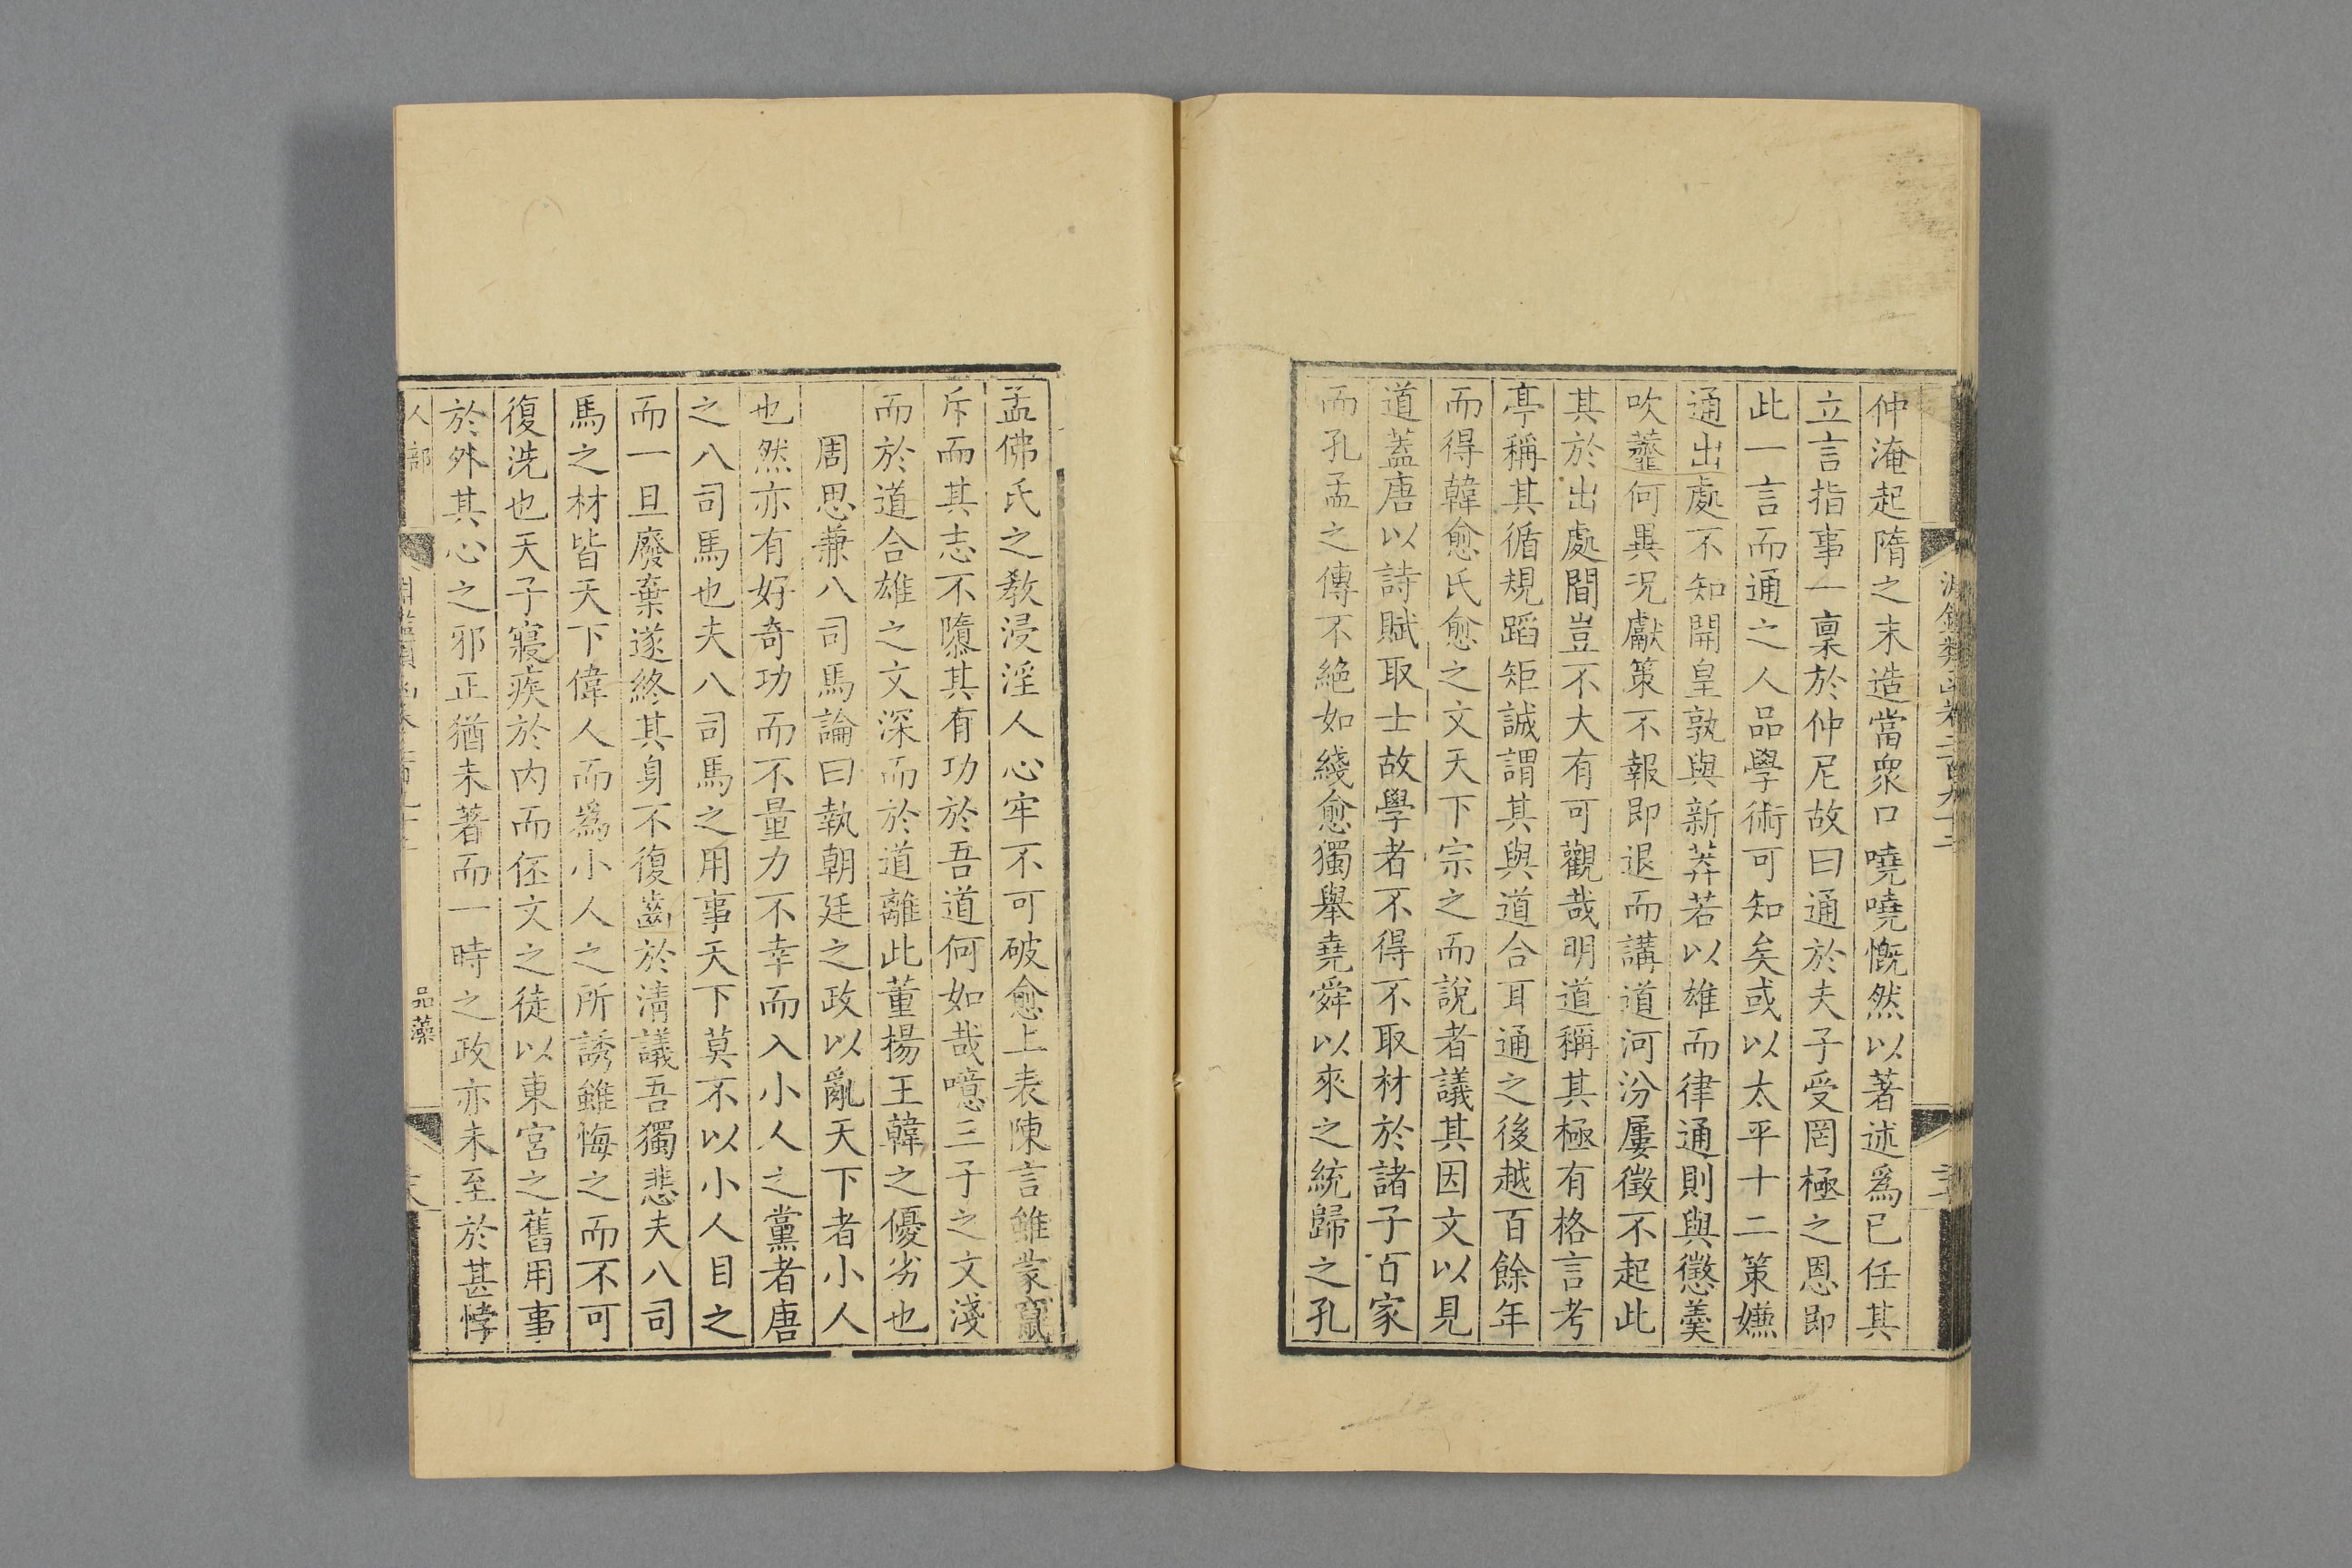 仲淹起隋之末造當衆口嘵嘵慨然以著述爲已任其
立言指事一稟於仲尼故曰通於夫子受罔極之恩即
此一言而通之人品學術可知矣或以太平十二策嫌
通出處不知開皇孰與新莽若以雄而律通則與懲羹
吹虀何異况獻策不報即退而講道河汾屢徵不起此
其於出處間豈不大有可觀哉明道稱其極有格言考
亭稱其循規蹈矩誠謂其與道合耳通之後越百餘年
而得韓愈氏愈之文天下宗之而說者議其因文以見
道蓋唐以詩賦取士故學者不得不取材於諸子百家
而孔孟之傳不絕如綫愈獨舉堯舜以來之統歸之孔
孟佛氏之教浸淫人心牢不可破愈上表陳言雖蒙竄
斥而其志不隳其有功於吾道何如哉噫三子之文淺
而於道合雄之文深而於道離此董揚王韓之優劣也
周思兼八司馬論曰執朝廷之政以亂天下者小人
也然亦有好奇功而不量力不幸而入小人之黨者唐
之八司馬也夫八司馬之用事天下莫不以小人目之
而一旦廢棄遂終其身不復齒於清議吾獨悲夫八司
馬之材皆天下偉人而爲小人之所誘雖悔之而不可
復洗也天子寢疾於内而伾文之徒以東宮之舊用事
於外其心之邪正猶未著而一時之政亦未至於甚悖
人部
品藻